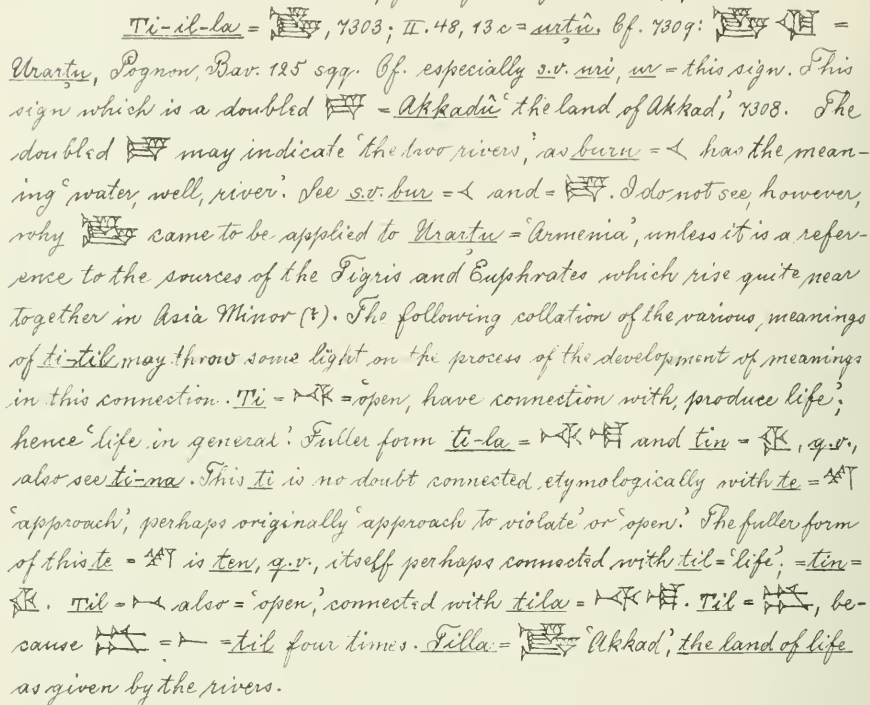 Ti-il-la = 𒌵, 7303; II. 48, 13 c = urṭû. Cf. 7309:  =
Urarṭu, Pognon, Bav. 125 sqq. Cf. especially s.v. uri, ur = this sign. This
sign which is a doubled  = Akkadû 'the land of Akkad', 7308. The
doubled  may indicate 'the two rivers,' as buru = 𒌋 has the mean-
ing 'water, well, river'. See s.v. bur = 𒌋 and = . I do not see, however,
why 𒌵 came to be applied to Urarṭu = 'Armenia', unless it is a refer-
ence to the sources of the Tigris and Euphrates which rise quite near
together in Asia Minor (?). The following collation of the various meanings
of ti-til may throw some light on the process of the development of meanings
in this connection. Ti = 𒋾 = 'open, have connection with, produce life';
hence 'life in general'. Fuller form ti-la = 𒋾 𒆷 and tin = 𒁷, q.v.,
also see ti-na. This ti is no doubt connected etymologically with te = 𒋼
'approach', perhaps originally 'approach to violate' or 'open'. The fuller form
of this te = 𒋼 is ten, q.v., itself perhaps connected with til = 'life'; = tin =
𒁷. Til = 𒁁 also = 'open,' connected with tila = 𒋾 𒆷. Til = , be-
cause  = 𒀸 = til four times. Tilla = 𒌵 'Akkad', the land of life
as given by the rivers.